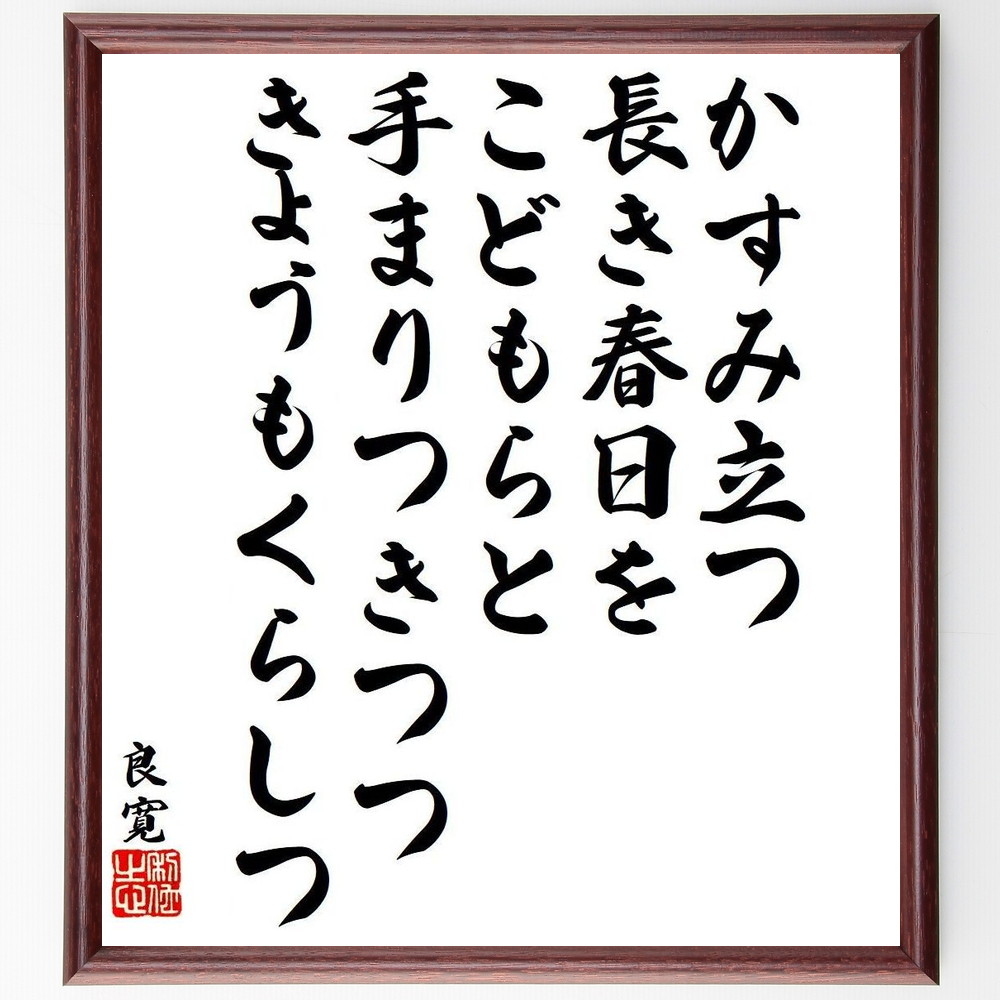 かすみ立つ
長き春日を
こどもらと
手まりつきつつ
きょうもくらしつ
良寛